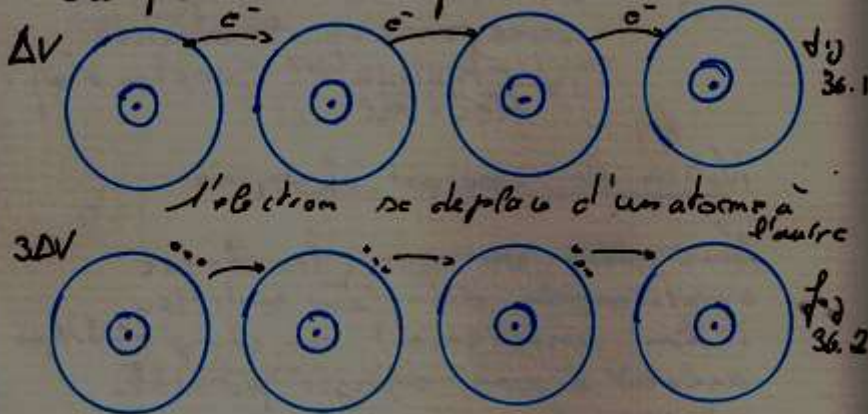 ΔV e⁻ e⁻ e⁻ fig
36.1
l'electron se deplace d'un atome à
l'autre
3ΔV fig
36.2